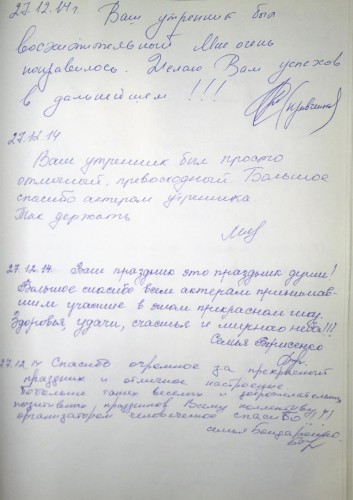 27.12.14г. Ваш утренник был
восхитительный Мне очень
понравилось. Желаю Вам успехов
в дальнейшем !!!
27.12.14
Ваш утренник был просто
отличный, превосходный. Большое
спасибо актерам утренника.
Так держать
27.12.14 Ваш праздник это праздник души!
Большое спасибо всем актерам принимав-
шим участие в этом прекрасном шоу.
Здоровья, удачи, счастья и мирного неба!!!
Семья Борисенко
27.12.14 Спасибо огромное за прекрасный
праздник и отличное настроение.
Побольше таких веселых и
позитивных праздников Всему коллективу
организаторам человеческое спасибо!!!
семья